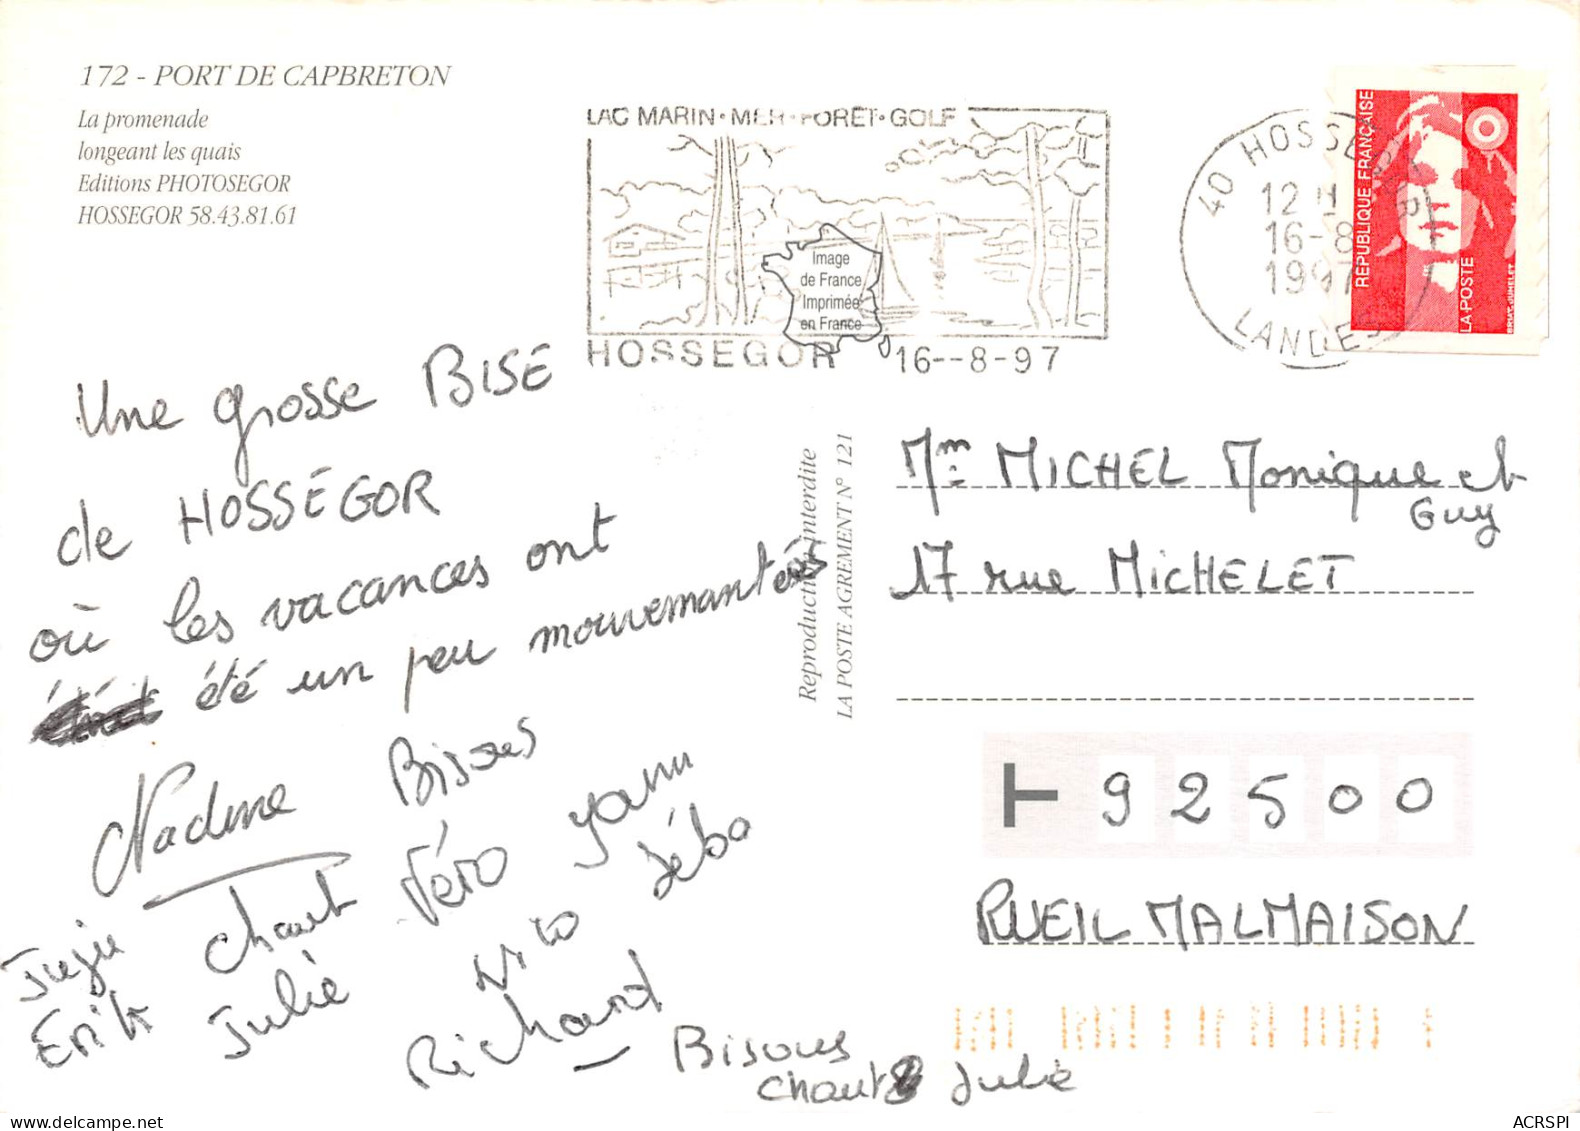 172 - PORT DE CAPBRETON
La promenade
longeant les quais
Editions PHOTOSEGOR
HOSSEGOR 58.43.81.61
LAC MARIN·MER·FORET·GOLF
Image
de France
Imprimée
en France
HOSSEGOR 16--8-97
40 HOSSEGOR
12 H
16-8
1997
LANDES
REPUBLIQUE FRANÇAISE
LA POSTE
Une grosse BISE
de HOSSÉGOR
où les vacances ont
été un peu mouvementés
Nadine
Bisous
Véro
Yann
Chant
Nico
Séba
Erik
Julie
Richard
— Bisous
Chant & Julie
Reproduction interdite
LA POSTE AGREMENT N° 121
Mme MICHEL Monique et
Guy
17 rue MICHELET
92500
RUEIL MALMAISON
ACRSPI